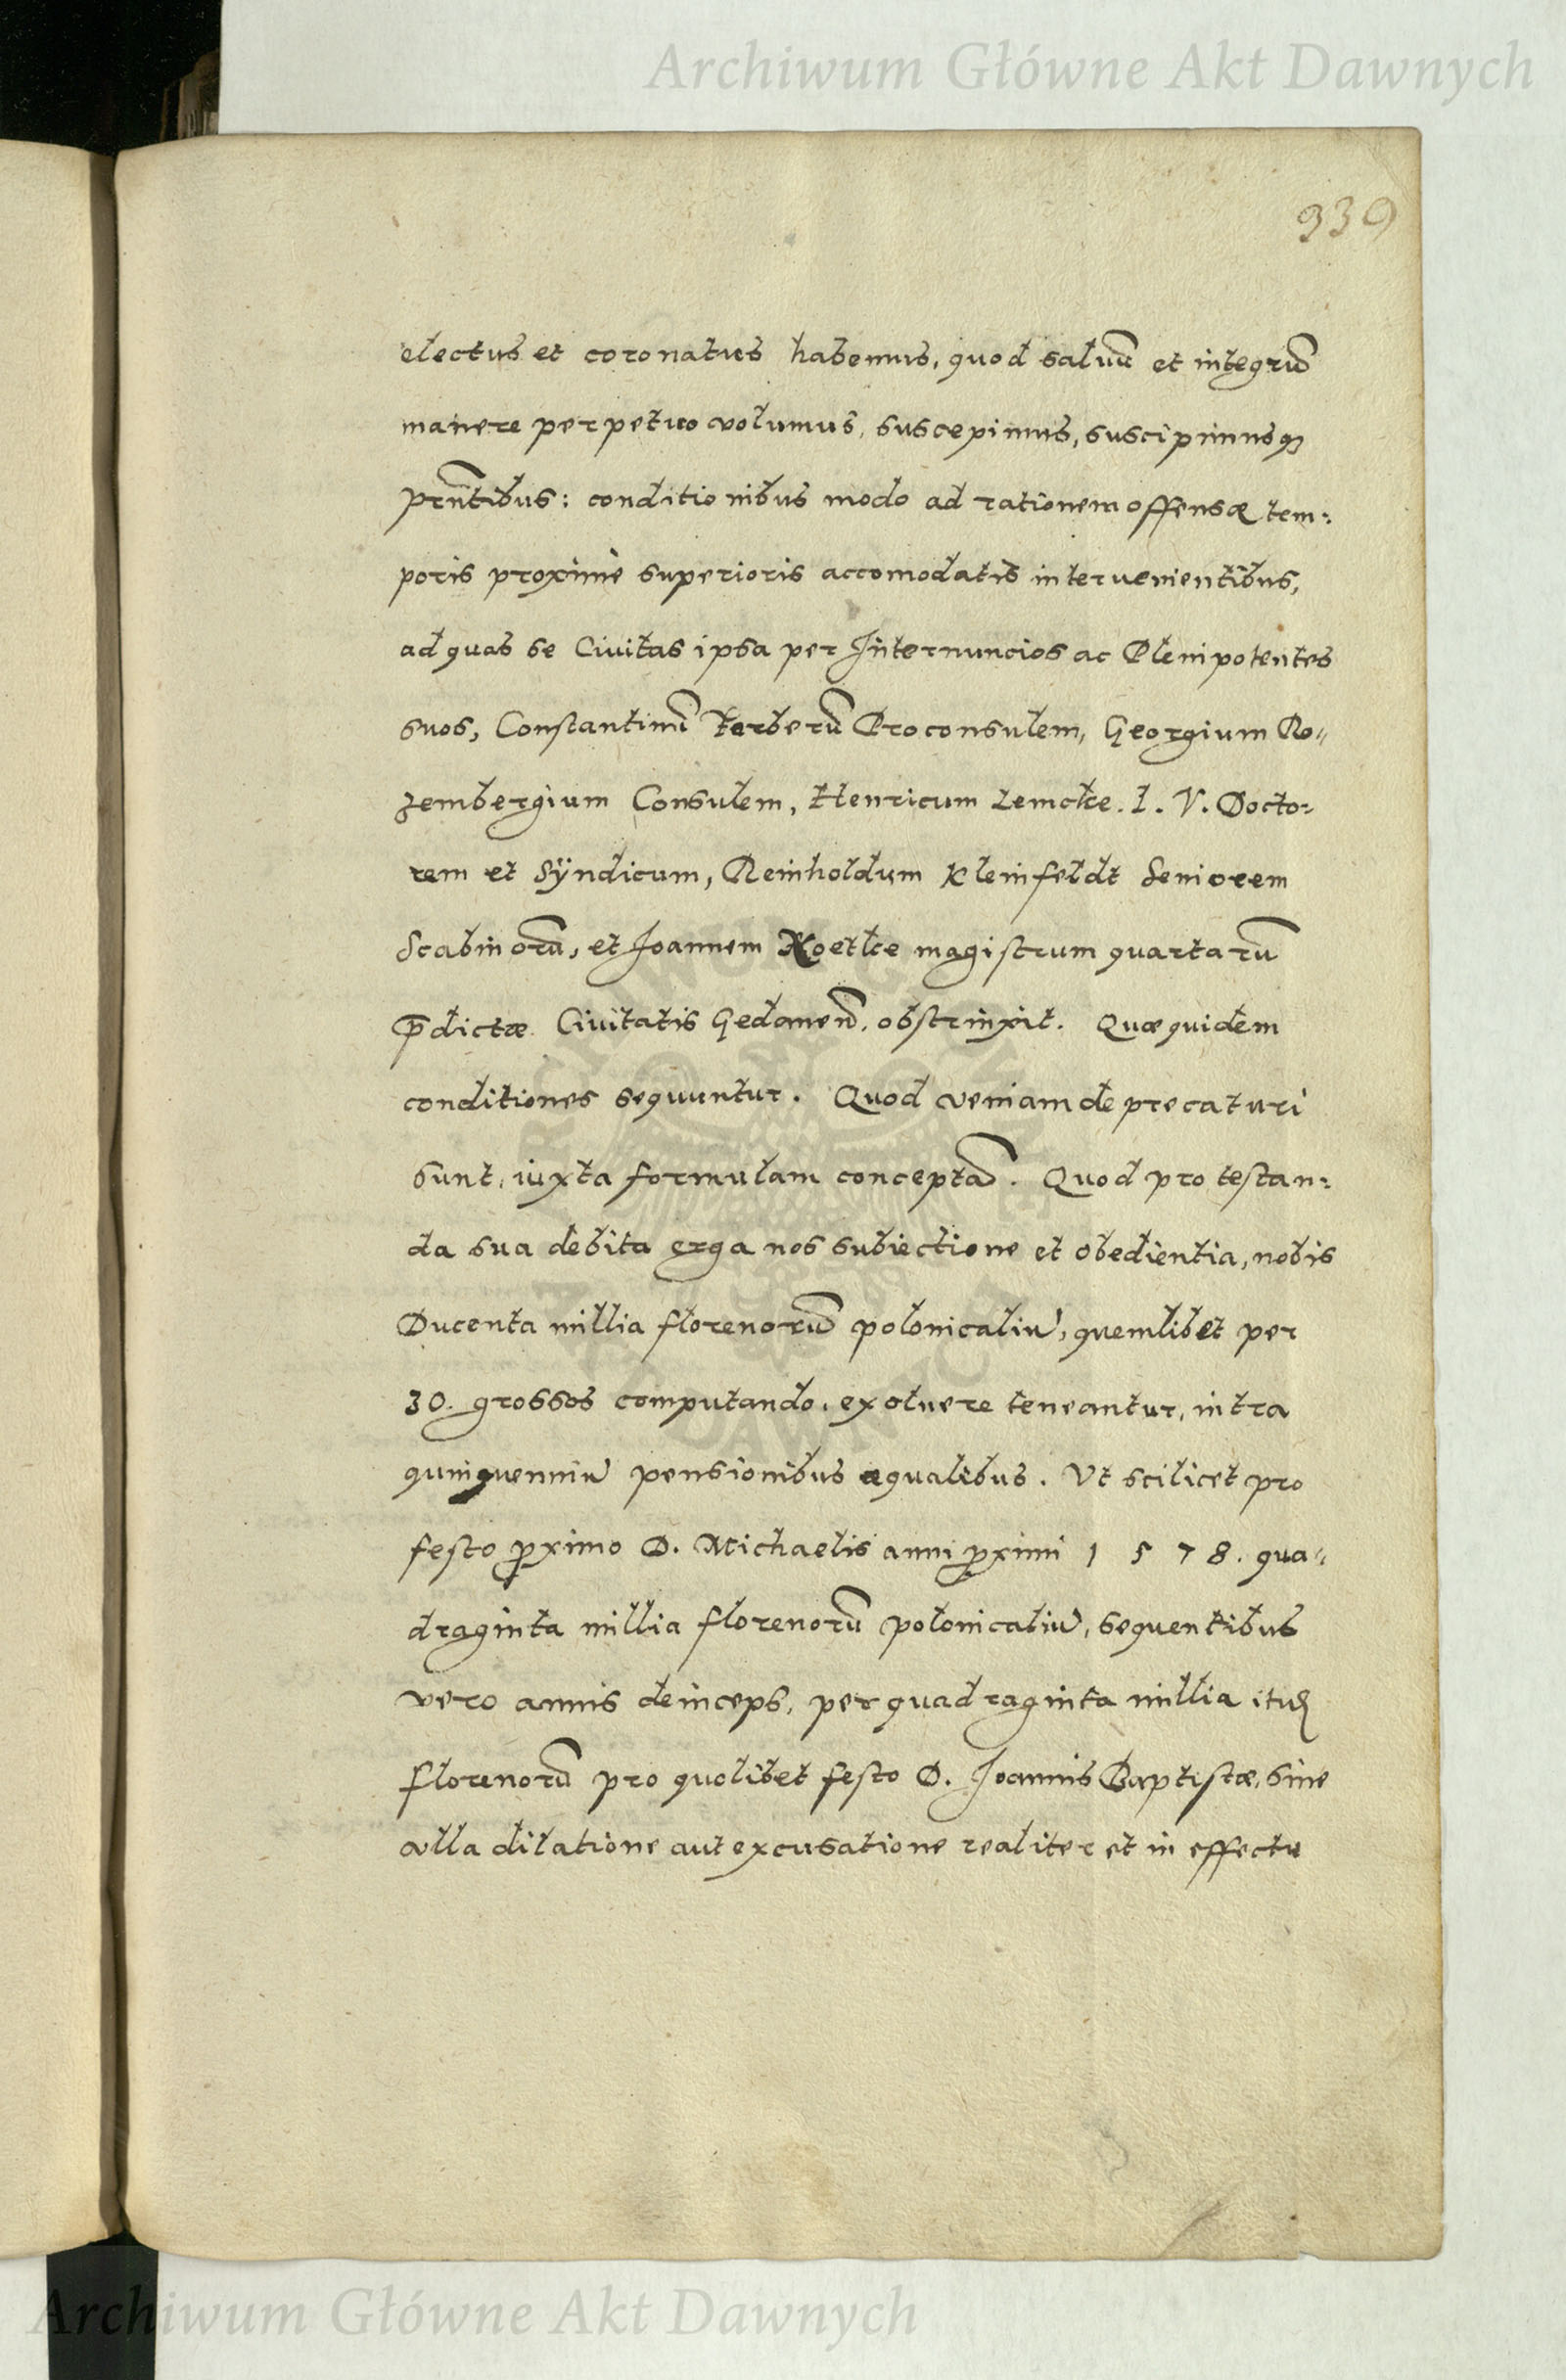 Archiwum Główne Akt Dawnych
939
electus et coronatus habemus, quod salvū et integrū
manere perpetuo volumus, suscepimus, suscipimusqꝫ
prn̄tibus: conditionibus modo ad rationem offensæ tem:
poris proxime superioris accomodatis intervenientibus,
ad quas se Civitas ipsa per Internuncios ac Plenipotentes
suos, Constantinū Ferberū Proconsulem, Georgium Ro-
zembergium Consulem, Henricum Lemcke. I. V. Docto-
rem et Sÿndicum, Reinholdum Kleinfeldt Seniorem
Scabinorū, et Joannem Koetke magistrum quartarū
p̄dictæ Civitatis Gedanen̄. obstrinxit. Quæquidem
conditiones sequuntur. Quod veniam deprecaturi
sunt, iuxta formulam conceptā. Quod pro testan:
da sua debita erga nos subiectione et obedientia, nobis
Ducenta millia florenorū polonicaliū, quemlibet per
30. grossos computando, exolvere teneantur, intra
quinquenniū pensionibus æqualibus. Vt scilicet pro
festo ꝓximo D. Michaelis anni ꝓximi 1578. qua-
draginta millia florenorū polonicaliū, sequentibus
vero annis deinceps, per quadraginta millia
florenorū pro quolibet festo D. Joannis Baptistæ, sine
ulla dilatione aut excusatione realiter et in effectu
Archiwum Główne Akt Dawnych